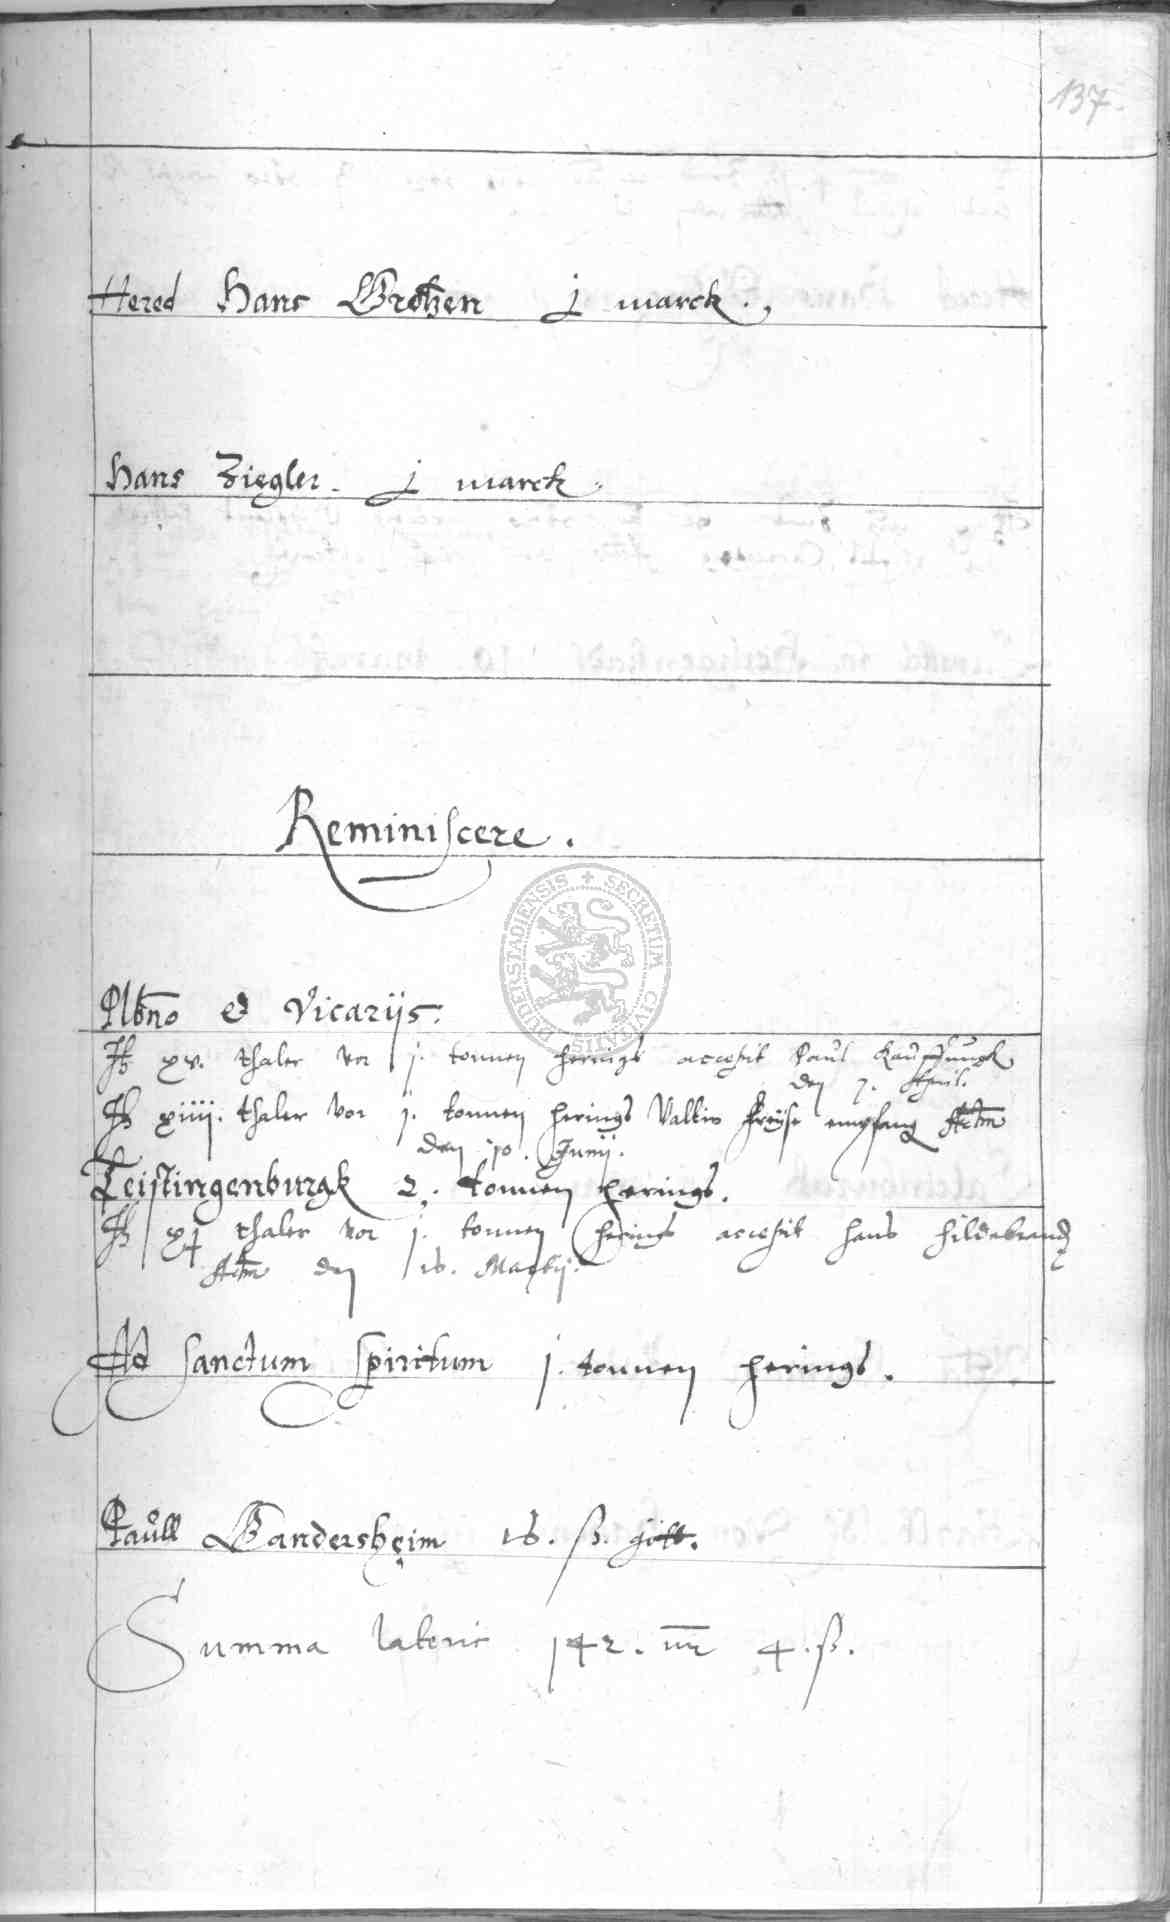 137.
Hered Hans Grothen j marck.
Hans Ziegler. j marck.
Reminiscere.
Plbno et Vicariis.
xv. thaler vor j. tonnen herings accepit Paul
den 7. April.
xiiii. thaler vor j. tonnen herings Valtin empfang
den 10. Junij.
Teistingenburgk 2. tonnen herings.
thaler vor j. tonnen herings accepit hans hildebrandt
den 16. Martij.
Ad Sanctum Spiritum j. tonnen herings.
Paull Gandersheim 16. ß. gött.
Summa lateris 142. mr 4. ß.
SECRETUM CIVITATIS DUDERSTADIENSIS